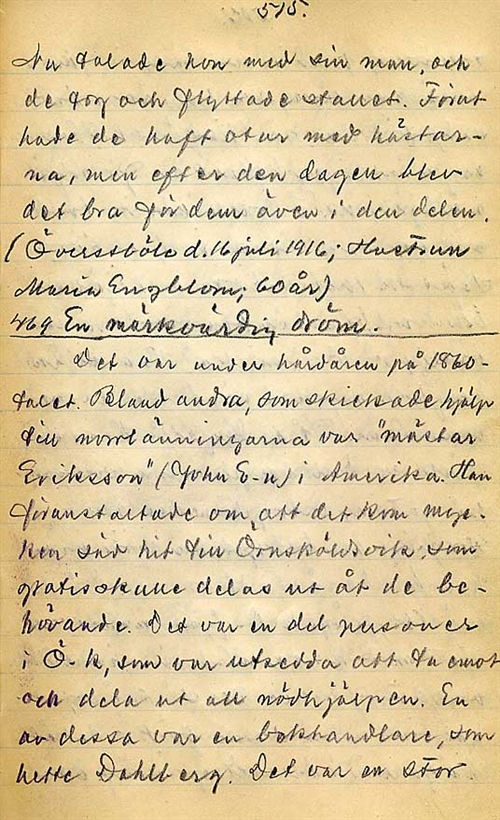 515.
Nu talade hon med sin man, och
de tog och flyttade stallet. Förut
hade de haft otur med hästar-
na, men efter den dagen blev
det bra för dem även i den delen.
(Överstböle d. 16 juli 1916; Hustrun
Maria Engblom; 60 år)
469 En märkvärdig dröm.
Det var under hårdåren på 1860-
talet. Bland andra, som skickade hjälp
till norrlänningarna var "mästar
Eriksson" (John E-n) i Amerika. Han
föranstaltade om, att det kom myc-
ken säd hit till Örnsköldsvik, som
gratis skulle delas ut åt de be-
hövande. Det var en del personer
i Ö-k, som var utsedda att ta emot
och dela ut all nödhjälpen. En
av dessa var en bokhandlare, som
hette Dahlberg. Det var en stor